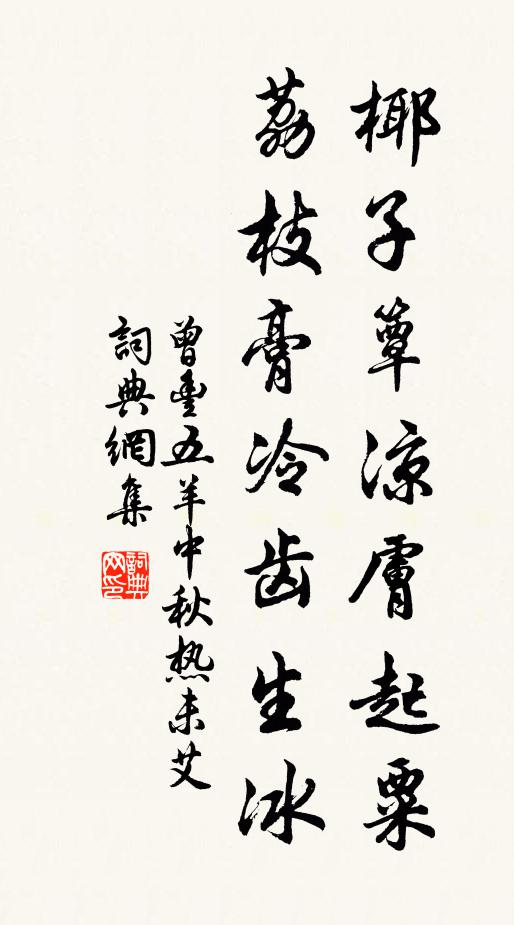 椰子簟涼膚起粟
荔枝膏冷齿生冰
曾豊五羊中秋热未艾
詞典網集
詞典網印